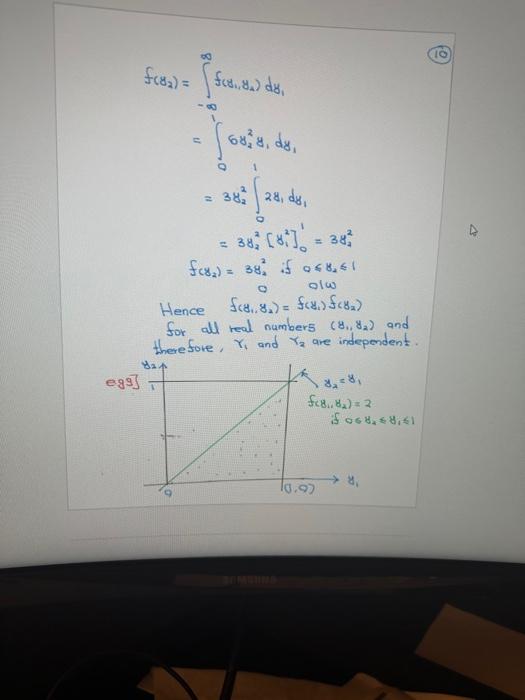 10
f(y₂) = ∫_{-∞}^{∞} f(y₁, y₂) dy₁
= ∫_{0}^{1} 6y₂² y₁ dy₁
= 3y₂² ∫_{0}^{1} 2y₁ dy₁
= 3y₂² [y₁²]_{0}^{1} = 3y₂²
f(y₂) = 3y₂² if 0 ≤ y₂ ≤ 1
0 o/w
Hence f(y₁, y₂) = f(y₁) f(y₂)
for all real numbers (y₁, y₂) and
therefore, Y₁ and Y₂ are independent.
y₂
eg9]
1
y₂ = y₁
f(y₁, y₂) = 2
if 0 ≤ y₂ ≤ y₁ ≤ 1
y₁
0
(1,0)
SAMSUNG